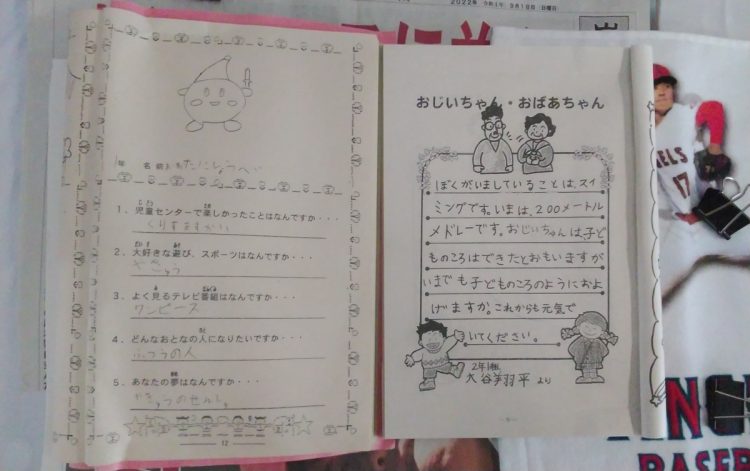 2022年
令和4年
9月18日
(日曜日)
年
名前
1．児童センターで楽しかったことはなんですか・・・
くりすますかい
2．大好きな遊び、スポーツはなんですか・・・
やきゅう
3．よく見るテレビ番組はなんですか・・・
ワンピース
4．どんなおとなの人になりたいですか・・・
ふつうの人
5．あなたの夢はなんですか・・・
12
おじいちゃん・おばあちゃん
ぼくがいましていることは、スイ
ミングです。いまは、200メートル
メドレーです。おじいちゃんは、子ど
ものころはできたとおもいますが
いまでも子どものころのようにおよ
げますか。これからも元気で
いてください。
2年1組
大谷翔平より
ELS
17
BASEB